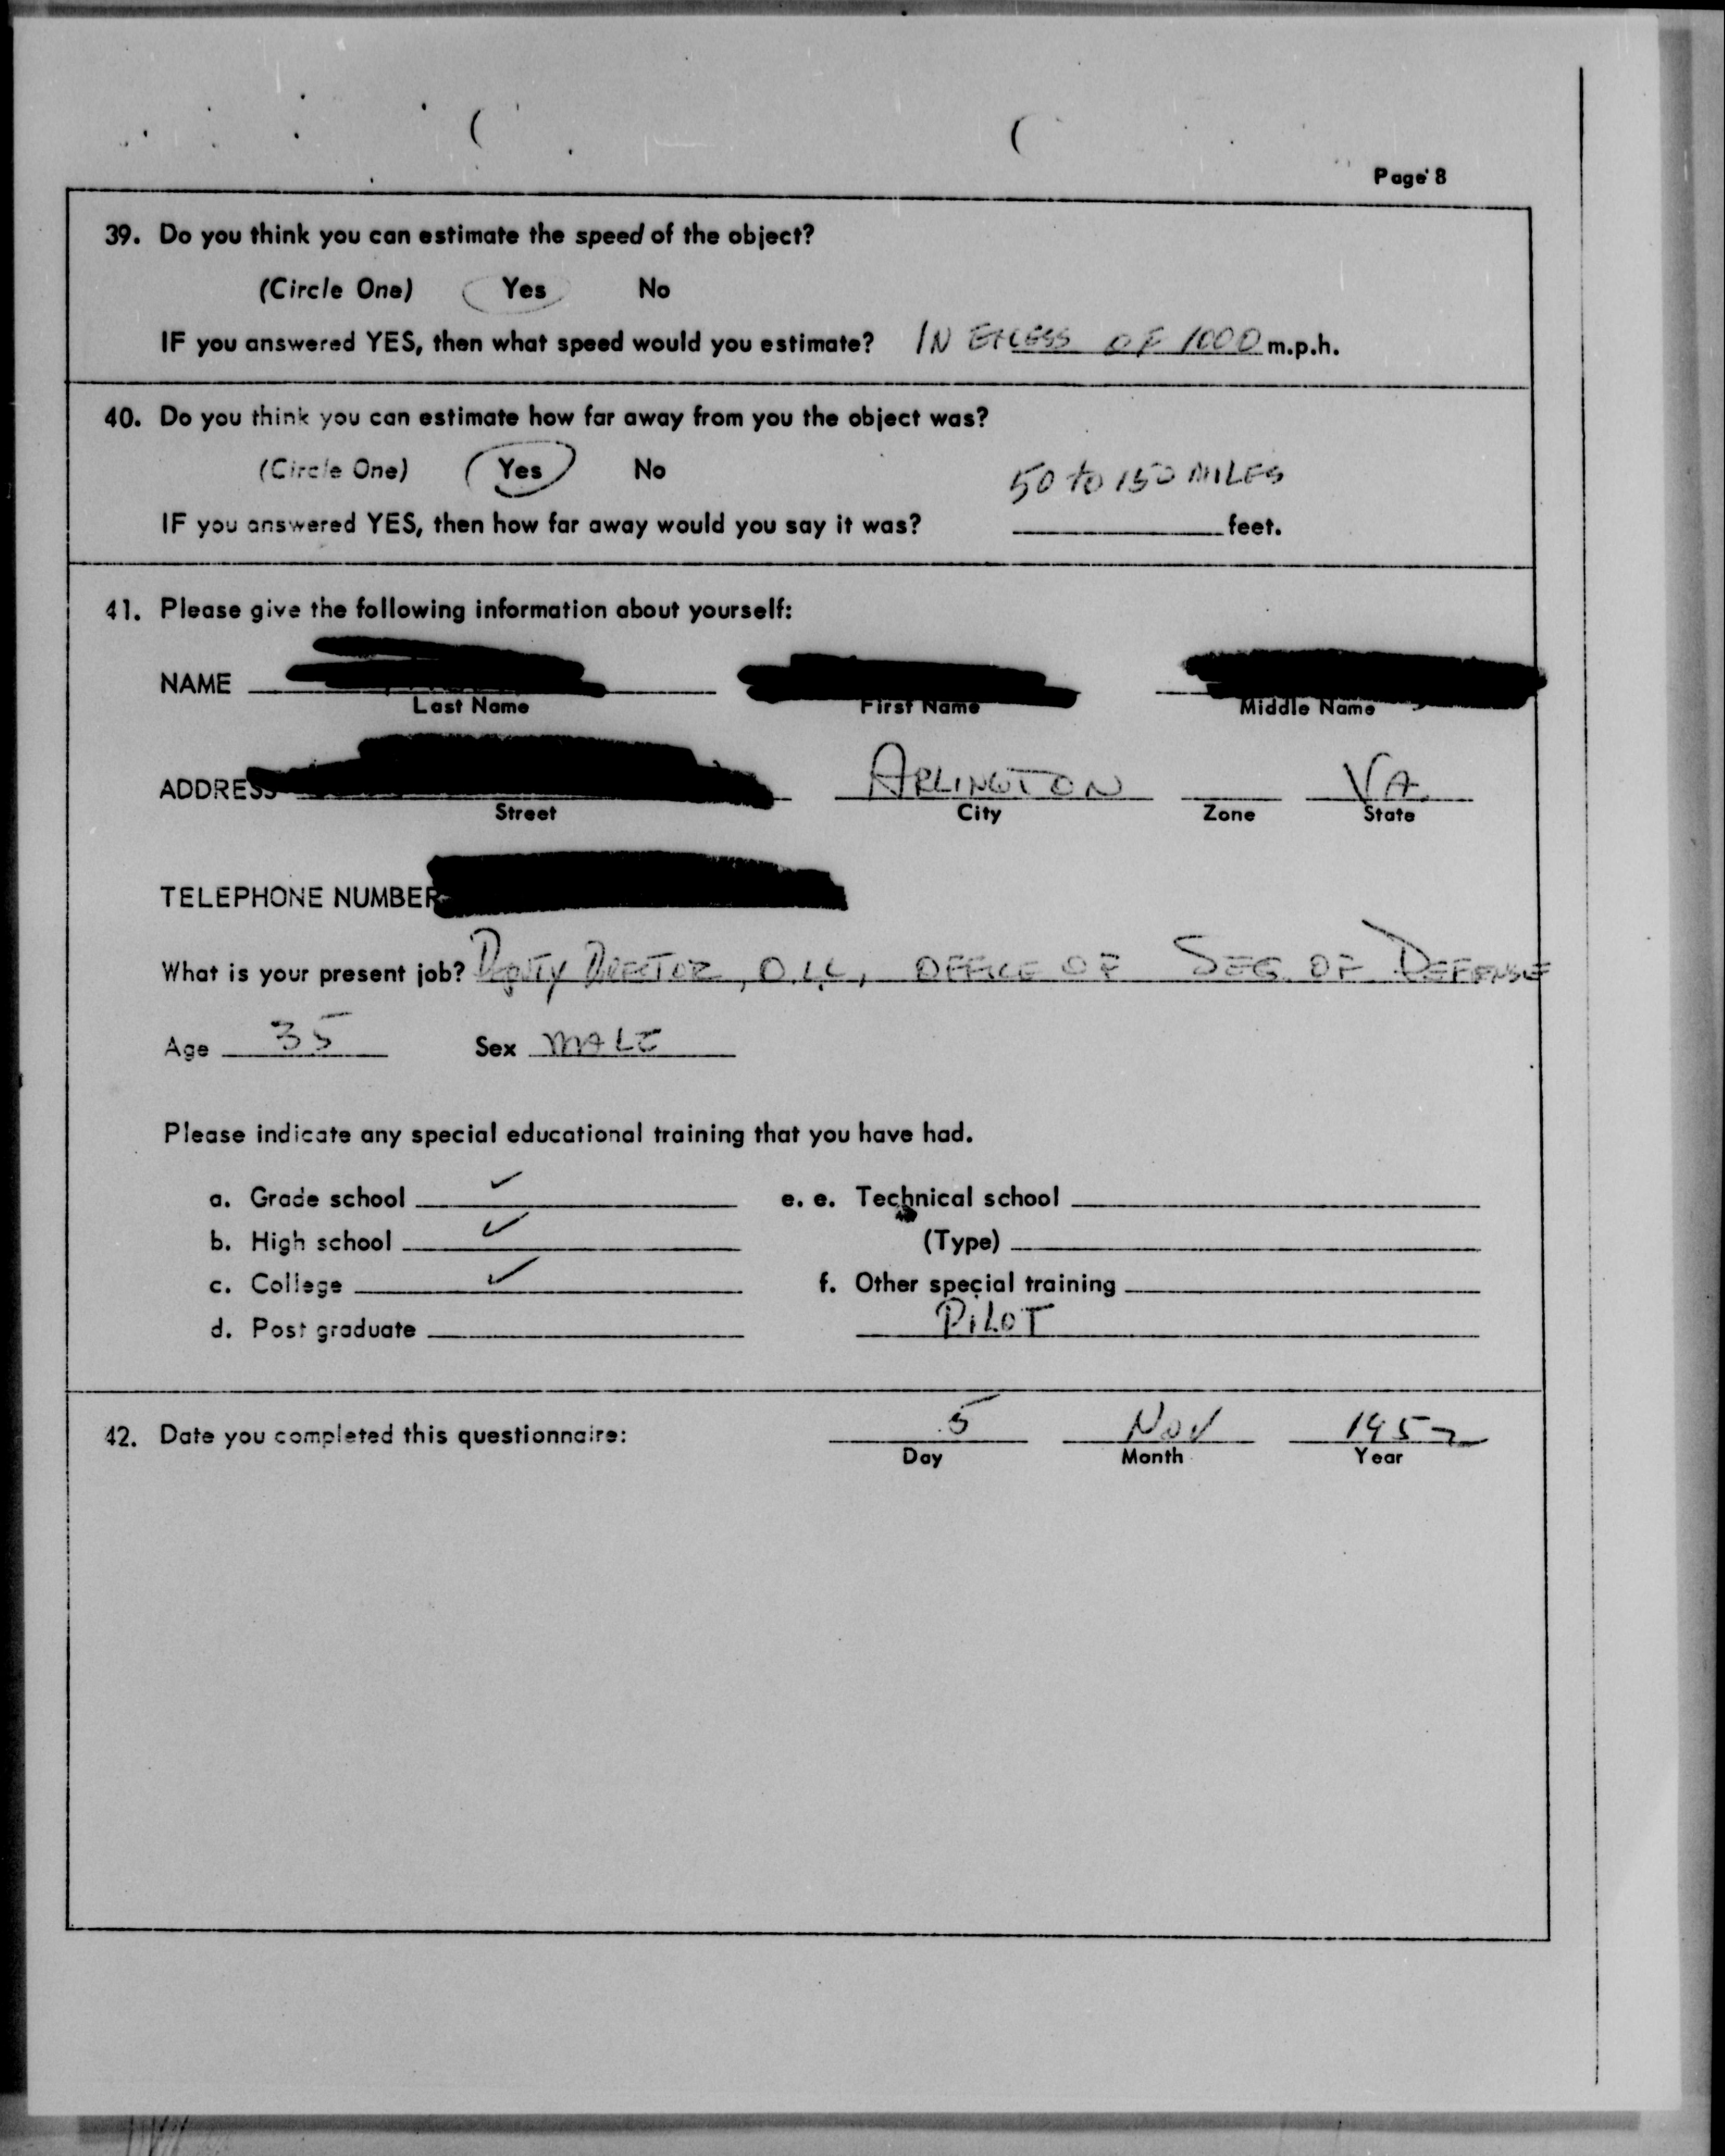 Page 8
39. Do you think you can estimate the speed of the object?
(Circle One) Yes No
IF you answered YES, then what speed would you estimate? IN EXCESS OF 1000 m.p.h.
40. Do you think you can estimate how far away from you the object was?
(Circle One) Yes No
50 to 150 MILES
IF you answered YES, then how far away would you say it was? feet.
41. Please give the following information about yourself:
NAME
Last Name First Name Middle Name
ADDRESS ARLINGTON VA.
Street City Zone State
TELEPHONE NUMBER
What is your present job? DEPUTY DIRECTOR, OFFICE OF SEC. OF DEFENSE
Age 35 Sex MALE
Please indicate any special educational training that you have had.
a. Grade school ✓ e. e. Technical school
b. High school ✓ (Type)
c. College ✓ f. Other special training
d. Post graduate PILOT
42. Date you completed this questionnaire: 5 Nov 1957
Day Month Year